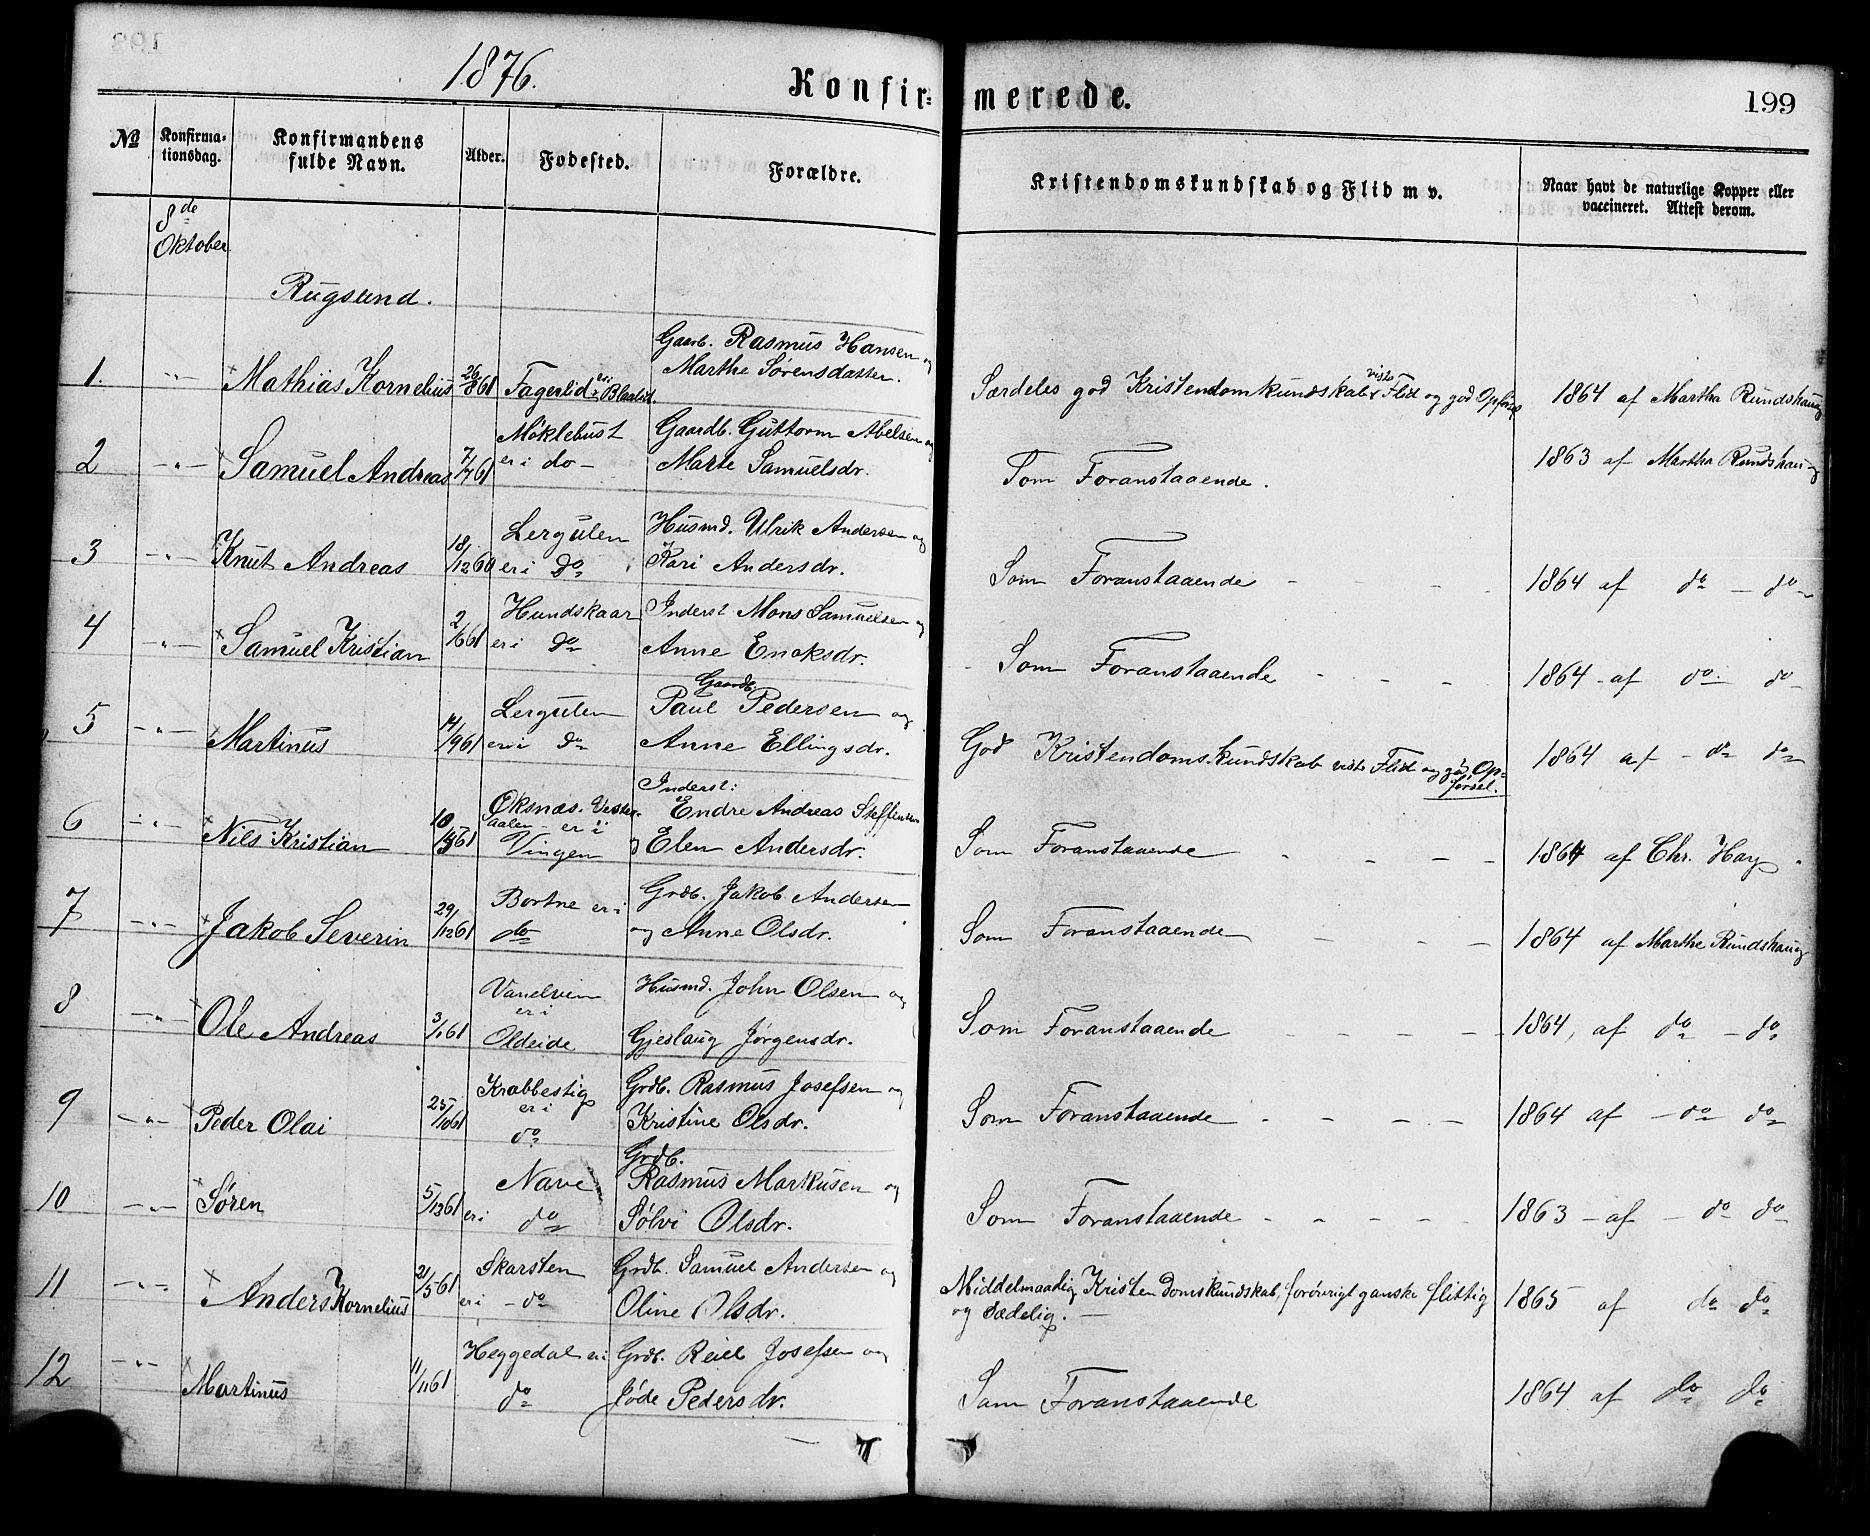 1876.
Konfir-
merede.
199
No
Konfirma-
tionsdag.
Konfirmandens
fulde Navn.
Alder.
Fødested.
Forældre.
Kristendomskundskab og Flid m v.
Naar havt de naturlige Kopper eller
vaccineret. Attest derom.
8de
Oktober
Rugsund.
Gaarb. Rasmus Hansen og
1. -"- Mathias Kornelius 26/861 Fagerlid er i Blaalid. Marthe Sørensdatter. Særdeles god Kristendomkundskab, viste Flid og god Opførsel 1864 af Martha Rundshaug
Møklebust Gaardb. Guttorm Abelsen og
2 -"- Samuel Andreas 7/761 er i do - Marte Samuelsdr. Som Foranstaaende. 1863 af Martha Rundshaug
Lergulen Husmd. Ulrik Andersen og
3 -"- Knut Andreas 18/1260 er i do Kari Andersdr. Som Foranstaaende - - - 1864 af do - do
Hundskaar Inderst Mons Samuelsen og
4 -"- Samuel Kristian 2/661 er i do Anne Enoksdr. - Som Foranstaaende - - - 1864 - af do do
Gaardb.
Lergulen Paul Pedersen og
5 -"- Martinus 14/961 er i do Anne Ellingsdr. God Kristendoms.kundskab viste Flid og god Op-
førsel. 1864 af - do do
Inderst:
Øksnæs. Vester- Endre Andreas Steffensen
aalen - er i
6 -"- Nils Kristian 10/561 Vingen og Elen Andersdr. Som Foranstaaende - - - - 1864 af Chr. Hay
Bortne er i Grdb. Jakob Andersen
7 -"- Jakob Severin 29/1261 do og Anne Olsdr. Som Foranstaaende - - - 1864 af Marthe Rundshaug
Vanelvien Husmd. John Olsen og
er i
8 -"- Ole Andreas 3/161 Oldeide Gjeslaug Jørgensdr. Som Foranstaaende - - - - 1864, af do - do
Krabbestig Grdb. Rasmus Josefsen og
er i
9 -"- Peder Olai 25/1061 do Kristine Olsdr. Som Foranstaaende - - - - 1864 af - do do
Grdb.
Nave Rasmus Markusen og
10 -"- Søren 5/1261 er i do Sølvi Olsdr. Som Foranstaaende - - - - - 1863 - af - do do
Skarsten Grdb. Samuel Andersen og
11 -"- Anders Kornelius 21/561 er i - do Oline Olsdr. Middelmaadig Kristendomskundskab, forøvrigt ganske flittig
og sædelig. - 1865 af do do
Heggedal er i Grdb. Reiel Josefsen og
12 -"- Martinus 11/1161 do Jøde Pedersdr. Som Foranstaaende 1864 af do do